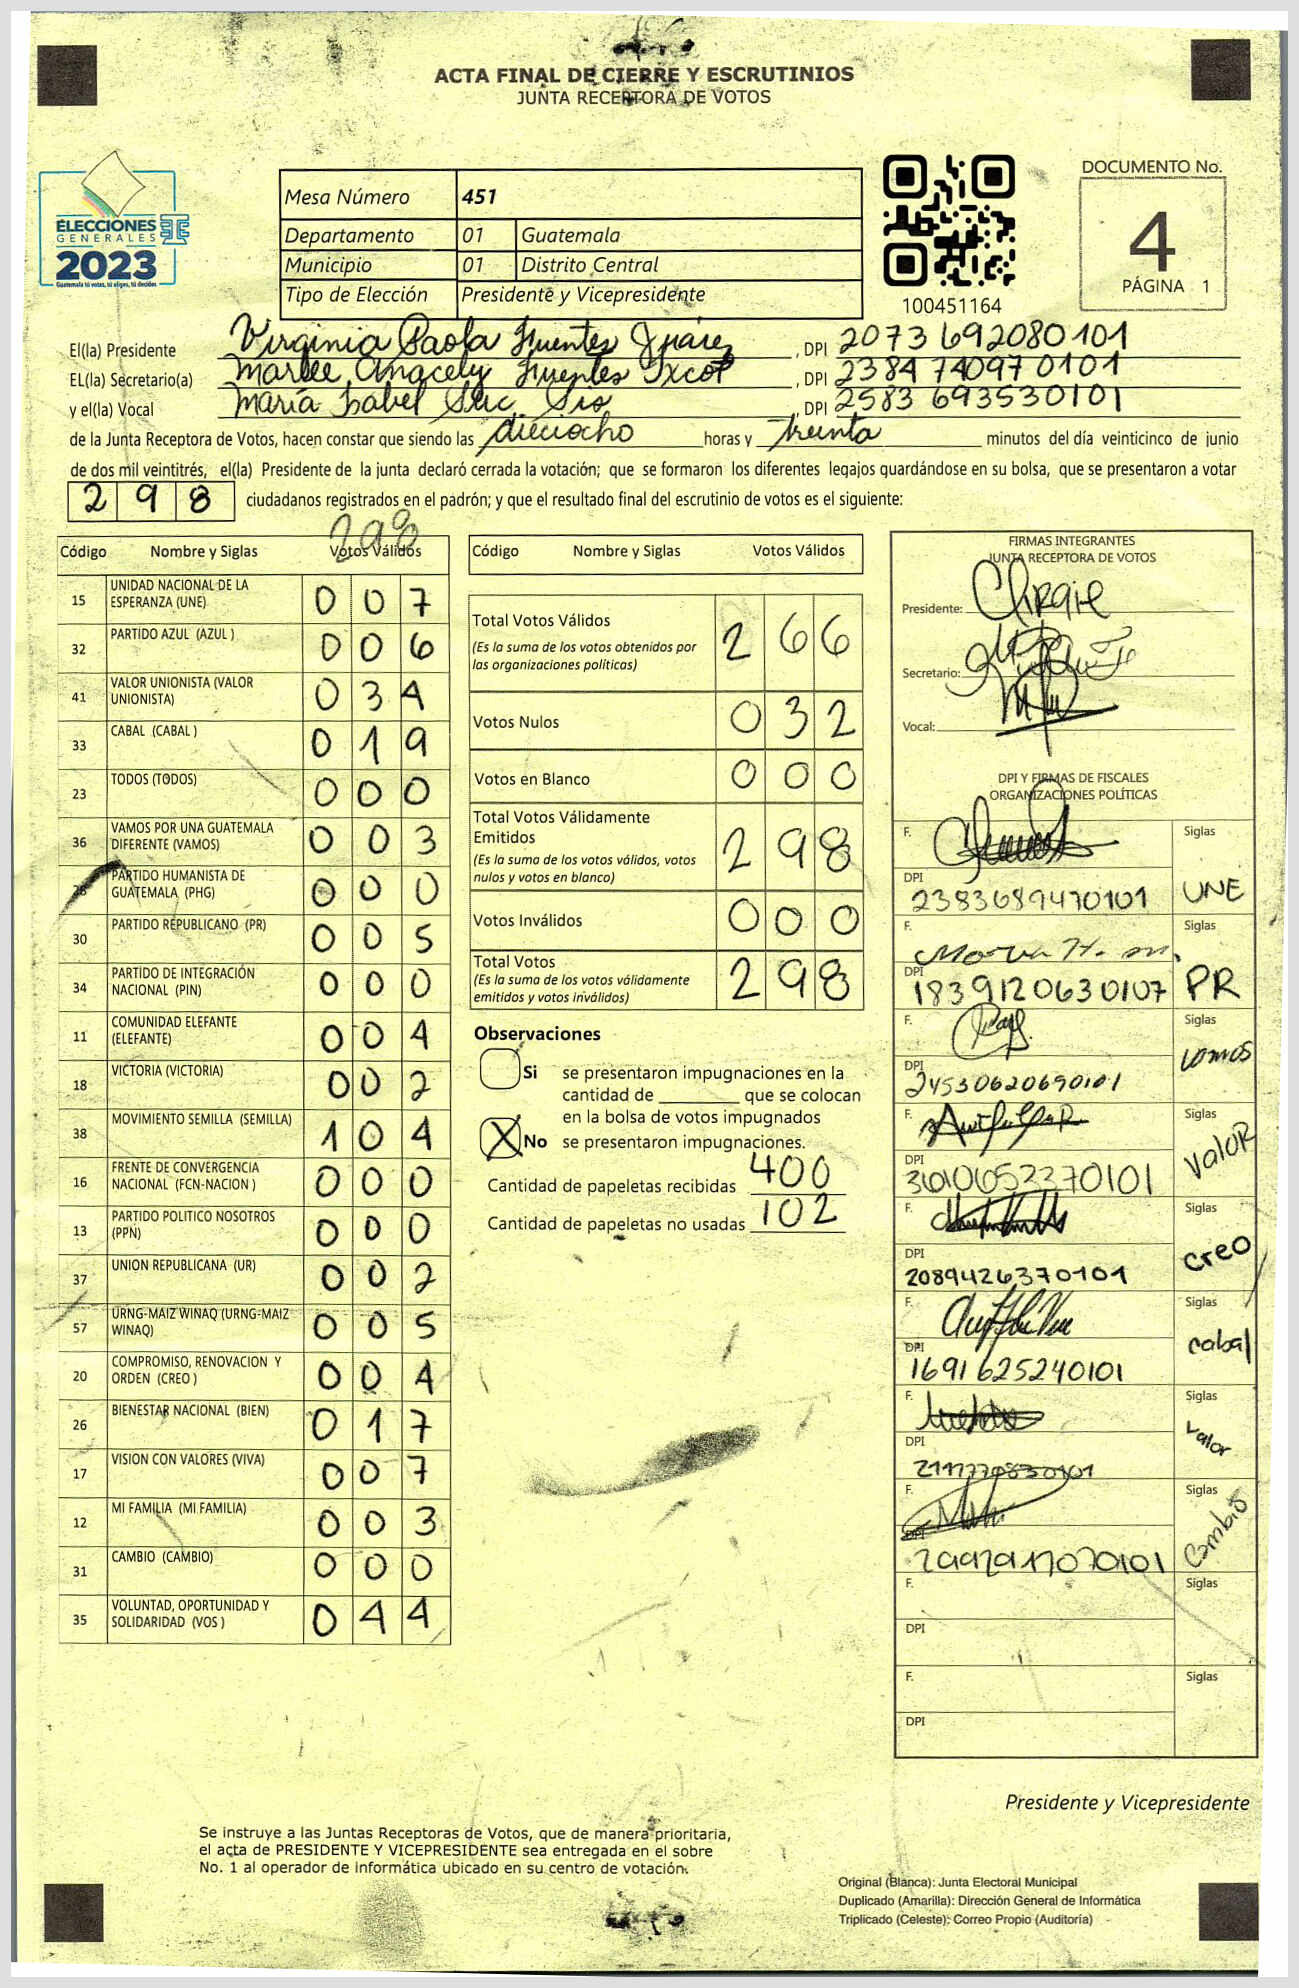 ACTA FINAL DE CIERRE Y ESCRUTINIOS
JUNTA RECEPTORA DE VOTOS
ELECCIONES
GENERALES
2023
Guatemala tú votas, tú eliges, tú decides
Mesa Número 451
Departamento 01 Guatemala
Municipio 01 Distrito Central
Tipo de Elección Presidente y Vicepresidente
100451164
DOCUMENTO No.
4
PÁGINA 1
El(la) Presidente Virginia Paola Fuentes Juárez , DPI 2073 692080101
EL(la) Secretario(a) Marlee Anacely Fuentes Ixcot , DPI 2384 740970101
y el(la) Vocal María Isabel Suc Sis , DPI 2583 693530101
de la Junta Receptora de Votos, hacen constar que siendo las dieciocho horas y treinta minutos del día veinticinco de junio
de dos mil veintitrés, el(la) Presidente de la junta declaró cerrada la votación; que se formaron los diferentes legajos guardándose en su bolsa, que se presentaron a votar
298 ciudadanos registrados en el padrón; y que el resultado final del escrutinio de votos es el siguiente:
298
Código Nombre y Siglas Votos Válidos
15 UNIDAD NACIONAL DE LA ESPERANZA (UNE) 007
32 PARTIDO AZUL (AZUL ) 006
41 VALOR UNIONISTA (VALOR UNIONISTA) 034
33 CABAL (CABAL ) 019
23 TODOS (TODOS) 000
36 VAMOS POR UNA GUATEMALA DIFERENTE (VAMOS) 003
PARTIDO HUMANISTA DE GUATEMALA (PHG) 000
30 PARTIDO REPUBLICANO (PR) 005
34 PARTIDO DE INTEGRACIÓN NACIONAL (PIN) 000
11 COMUNIDAD ELEFANTE (ELEFANTE) 004
18 VICTORIA (VICTORIA) 002
38 MOVIMIENTO SEMILLA (SEMILLA) 104
16 FRENTE DE CONVERGENCIA NACIONAL (FCN-NACION ) 000
13 PARTIDO POLITICO NOSOTROS (PPN) 000
37 UNION REPUBLICANA (UR) 002
57 URNG-MAIZ WINAQ (URNG-MAIZ WINAQ) 005
20 COMPROMISO, RENOVACION Y ORDEN (CREO ) 004
26 BIENESTAR NACIONAL (BIEN) 017
17 VISION CON VALORES (VIVA) 007
12 MI FAMILIA (MI FAMILIA) 003
31 CAMBIO (CAMBIO) 000
35 VOLUNTAD, OPORTUNIDAD Y SOLIDARIDAD (VOS ) 044
Código Nombre y Siglas Votos Válidos
Total Votos Válidos 266
(Es la suma de los votos obtenidos por
las organizaciones políticas)
Votos Nulos 032
Votos en Blanco 000
Total Votos Válidamente
Emitidos 298
(Es la suma de los votos válidos, votos
nulos y votos en blanco)
Votos Inválidos 000
Total Votos 298
(Es la suma de los votos válidamente
emitidos y votos inválidos)
Observaciones
Si se presentaron impugnaciones en la
cantidad de ________ que se colocan
en la bolsa de votos impugnados
X No se presentaron impugnaciones.
Cantidad de papeletas recibidas 400
Cantidad de papeletas no usadas 102
FIRMAS INTEGRANTES
JUNTA RECEPTORA DE VOTOS
Presidente:
Secretario:
Vocal:
DPI Y FIRMAS DE FISCALES
ORGANIZACIONES POLÍTICAS
F. Siglas
DPI 2383689470101 UNE
F. Siglas
DPI 1839120630107 PR
F. Siglas
DPI 24530620690101 vamos
F. Siglas
DPI valoR
F. Siglas
DPI 2089426370101 creo
F. Siglas
DPI 1691625240101 cabal
F. Siglas
DPI valor
F. Siglas
DPI cambio
F. Siglas
DPI
F. Siglas
DPI
Presidente y Vicepresidente
Se instruye a las Juntas Receptoras de Votos, que de manera prioritaria,
el acta de PRESIDENTE Y VICEPRESIDENTE sea entregada en el sobre
No. 1 al operador de informática ubicado en su centro de votación.
Original (Blanca): Junta Electoral Municipal
Duplicado (Amarilla): Dirección General de Informática
Triplicado (Celeste): Correo Propio (Auditoría)